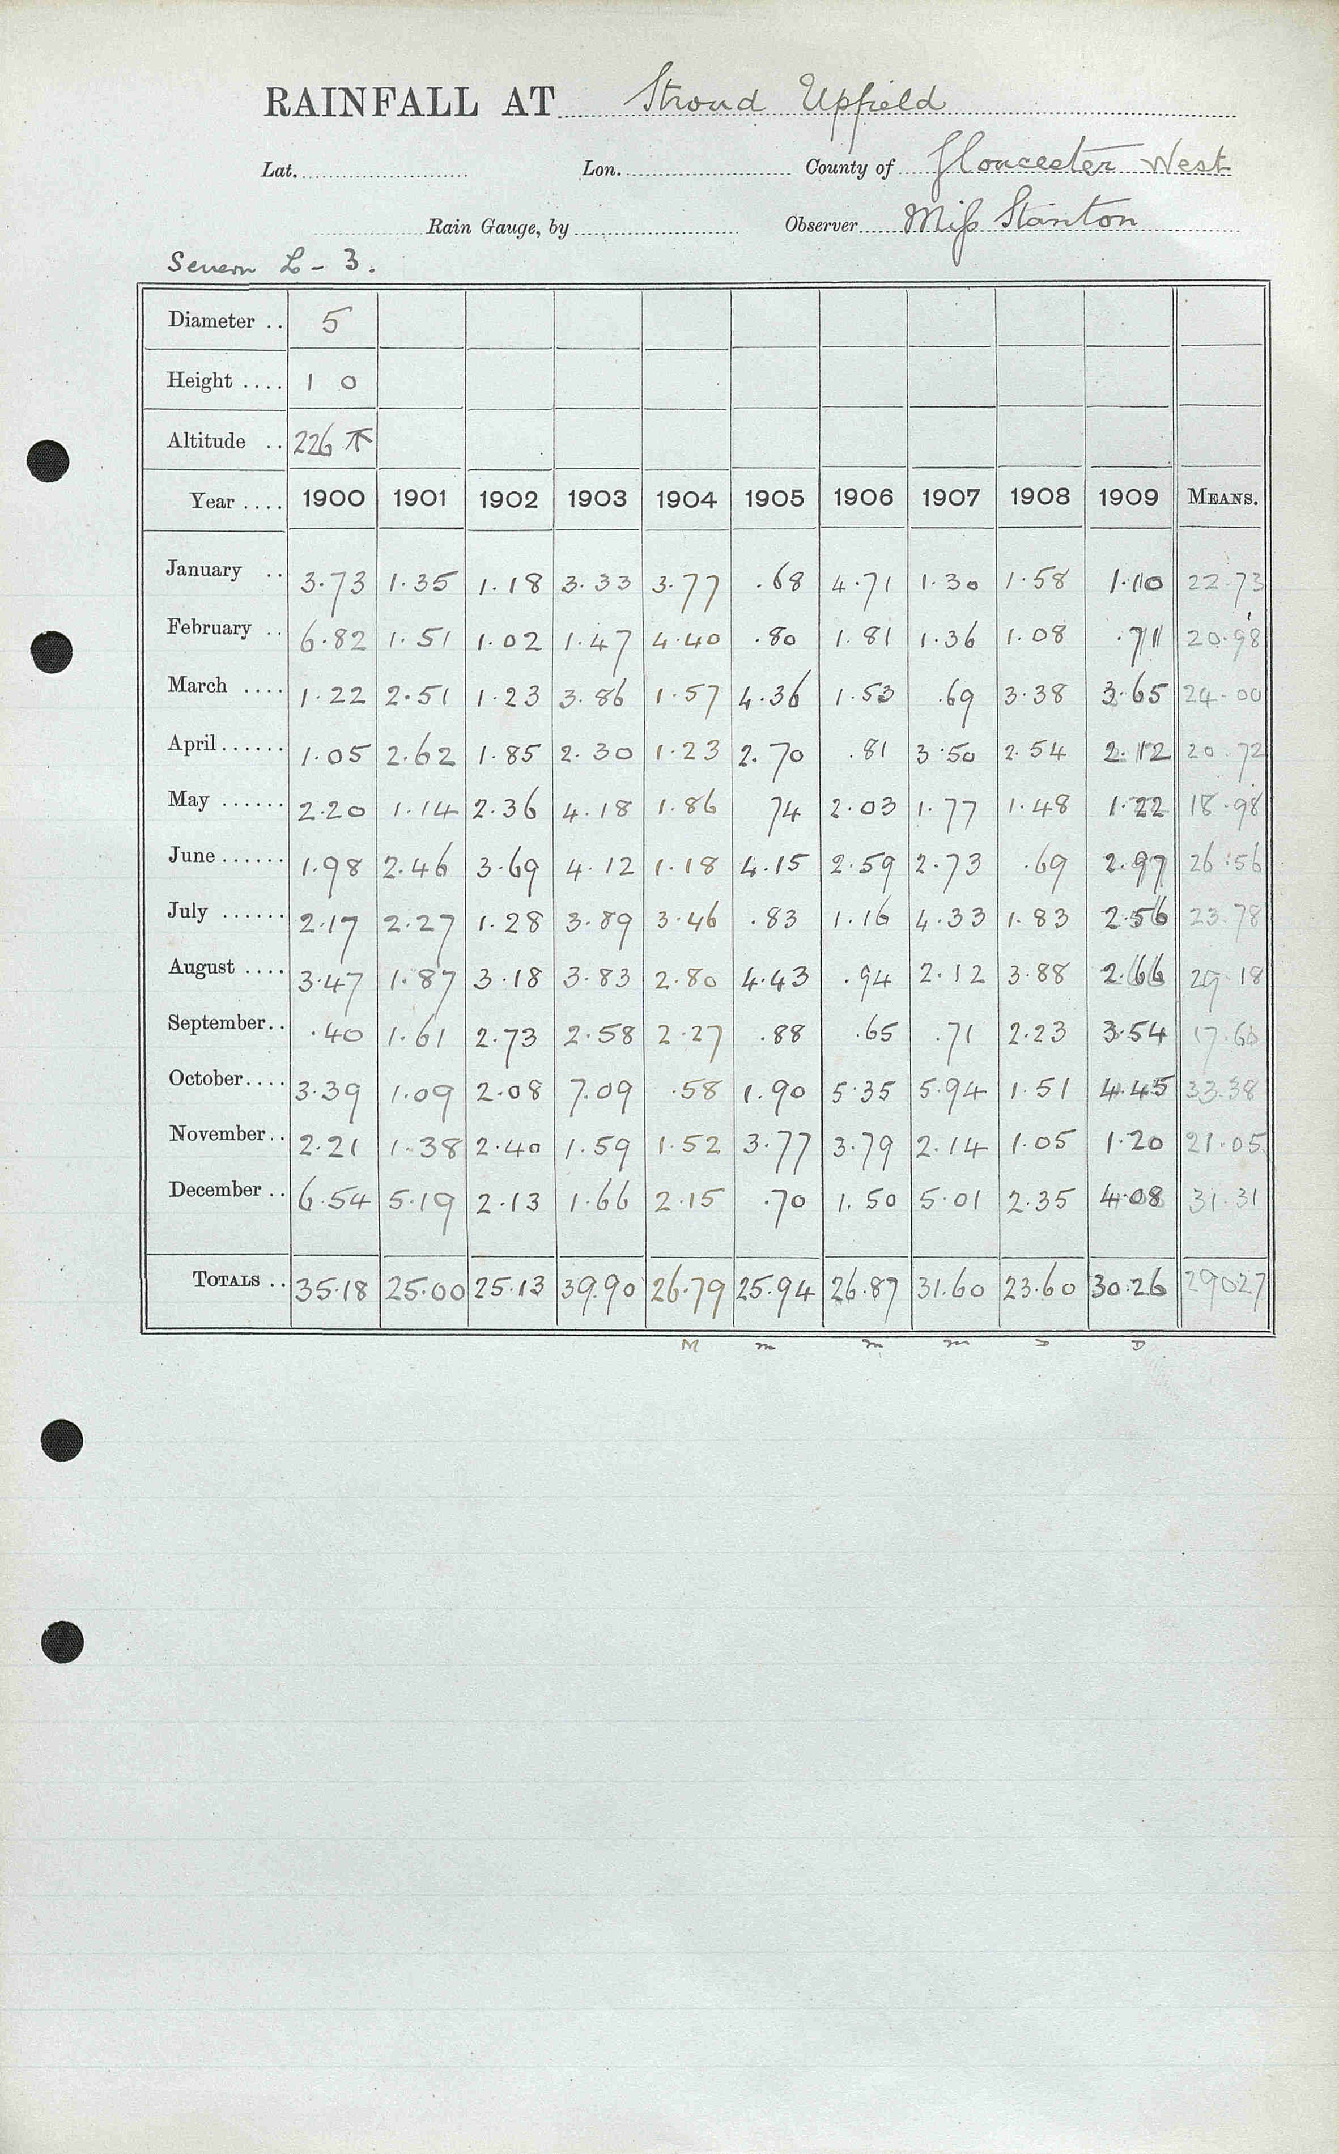 RAINFALL AT Stroud Upfield
Lat. Lon. County of Gloucester West
Rain Gauge, by Observer Miss Stanton
Severn L - 3.
Diameter .. 5
Height .... 1 0
Altitude .. 226
Year .... 1900 1901 1902 1903 1904 1905 1906 1907 1908 1909 MEANS.
January .. 3.73 1.35 1.18 3.33 3.77 .68 4.71 1.30 1.58 1.10 22.73
February .. 6.82 1.51 1.02 1.47 4.40 .80 1.81 1.36 1.08 .71 20.98
March .... 1.22 2.51 1.23 3.86 1.57 4.36 1.53 .69 3.38 3.65 24.00
April ...... 1.05 2.62 1.85 2.30 1.23 2.70 .81 3.50 2.54 2.12 20.72
May ...... 2.20 1.14 2.36 4.18 1.86 74 2.03 1.77 1.48 1.22 18.98
June ...... 1.98 2.46 3.69 4.12 1.18 4.15 2.59 2.73 .69 2.97 26.56
July ...... 2.17 2.27 1.28 3.89 3.46 .83 1.16 4.33 1.83 2.56 23.78
August .... 3.47 1.87 3.18 3.83 2.80 4.43 .94 2.12 3.88 2.66 29.18
September .. .40 1.61 2.73 2.58 2.27 .88 .65 .71 2.23 3.54 17.60
October .... 3.39 1.09 2.08 7.09 .58 1.90 5.35 5.94 1.51 4.45 33.38
November .. 2.21 1.38 2.40 1.59 1.52 3.77 3.79 2.14 1.05 1.20 21.05
December .. 6.54 5.19 2.13 1.66 2.15 .70 1.50 5.01 2.35 4.08 31.31
TOTALS .. 35.18 25.00 25.13 39.90 26.79 25.94 26.87 31.60 23.60 30.26 29027
M m m m D D